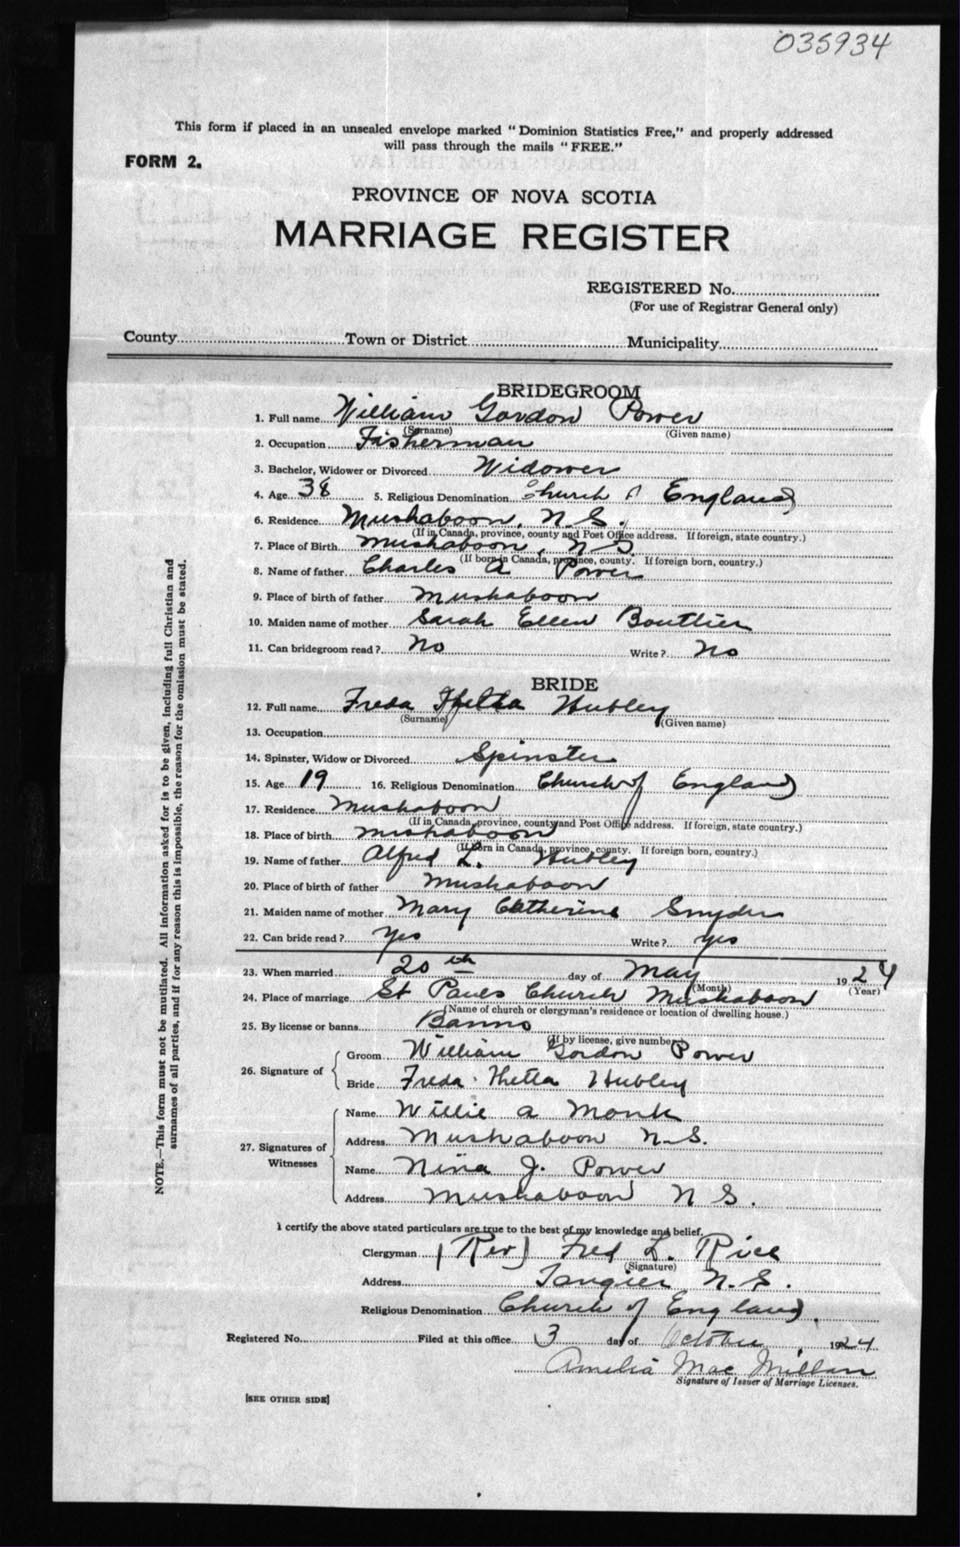 035934
This form if placed in an unsealed envelope marked "Dominion Statistics Free," and properly addressed
will pass through the mails "FREE."
FORM 2.
PROVINCE OF NOVA SCOTIA
MARRIAGE REGISTER
REGISTERED No.
(For use of Registrar General only)
County Town or District Municipality
BRIDEGROOM
1. Full name William Gordon Power
(Surname) (Given name)
2. Occupation Fisherman
3. Bachelor, Widower or Divorced Widower
4. Age 38 5. Religious Denomination Church of England
6. Residence Mushaboon, N.S.
(If in Canada, province, county and Post Office address. If foreign, state country.)
7. Place of Birth Mushaboon, N.S
(If born in Canada, province, county. If foreign born, country.)
8. Name of father Charles A Power
9. Place of birth of father Mushaboon
10. Maiden name of mother Sarah Ellen Boutlier
11. Can bridegroom read? No Write? No
BRIDE
12. Full name Freda Thelta Hubley
(Surname) (Given name)
13. Occupation
14. Spinster, Widow or Divorced Spinster
15. Age 19 16. Religious Denomination Church of England
17. Residence Mushaboon
(If in Canada, province, county and Post Office address. If foreign, state country.)
18. Place of birth Mushaboon
(If born in Canada, province, county. If foreign born, country.)
19. Name of father Alfred L. Hubley
20. Place of birth of father Mushaboon
21. Maiden name of mother Mary Catherine Snyder
22. Can bride read? Yes Write? yes
23. When married 20th day of May 1924
(Month) (Year)
24. Place of marriage St Pauls Church Mushaboon
(Name of church or clergyman's residence or location of dwelling house.)
25. By license or banns Banns
(If by license, give number)
26. Signature of
Groom William Gordon Power
Bride Freda Thetla Hubley
27. Signatures of Witnesses
Name Willie A Monk
Address Mushaboon N.S.
Name Nina J. Power
Address Mushaboon N S.
I certify the above stated particulars are true to the best of my knowledge and belief.
Clergyman (Rev) Fred L. Rice
(Signature)
Address Tangier N.S.
Religious Denomination Church of England.
Registered No. Filed at this office 3 day of October 1924
Amelia MacMillan
Signature of Issuer of Marriage Licenses.
[SEE OTHER SIDE]
NOTE.—This form must not be mutilated. All information asked for is to be given, including full Christian and
surnames of all parties, and if for any reason this is impossible, the reason for the omission must be stated.